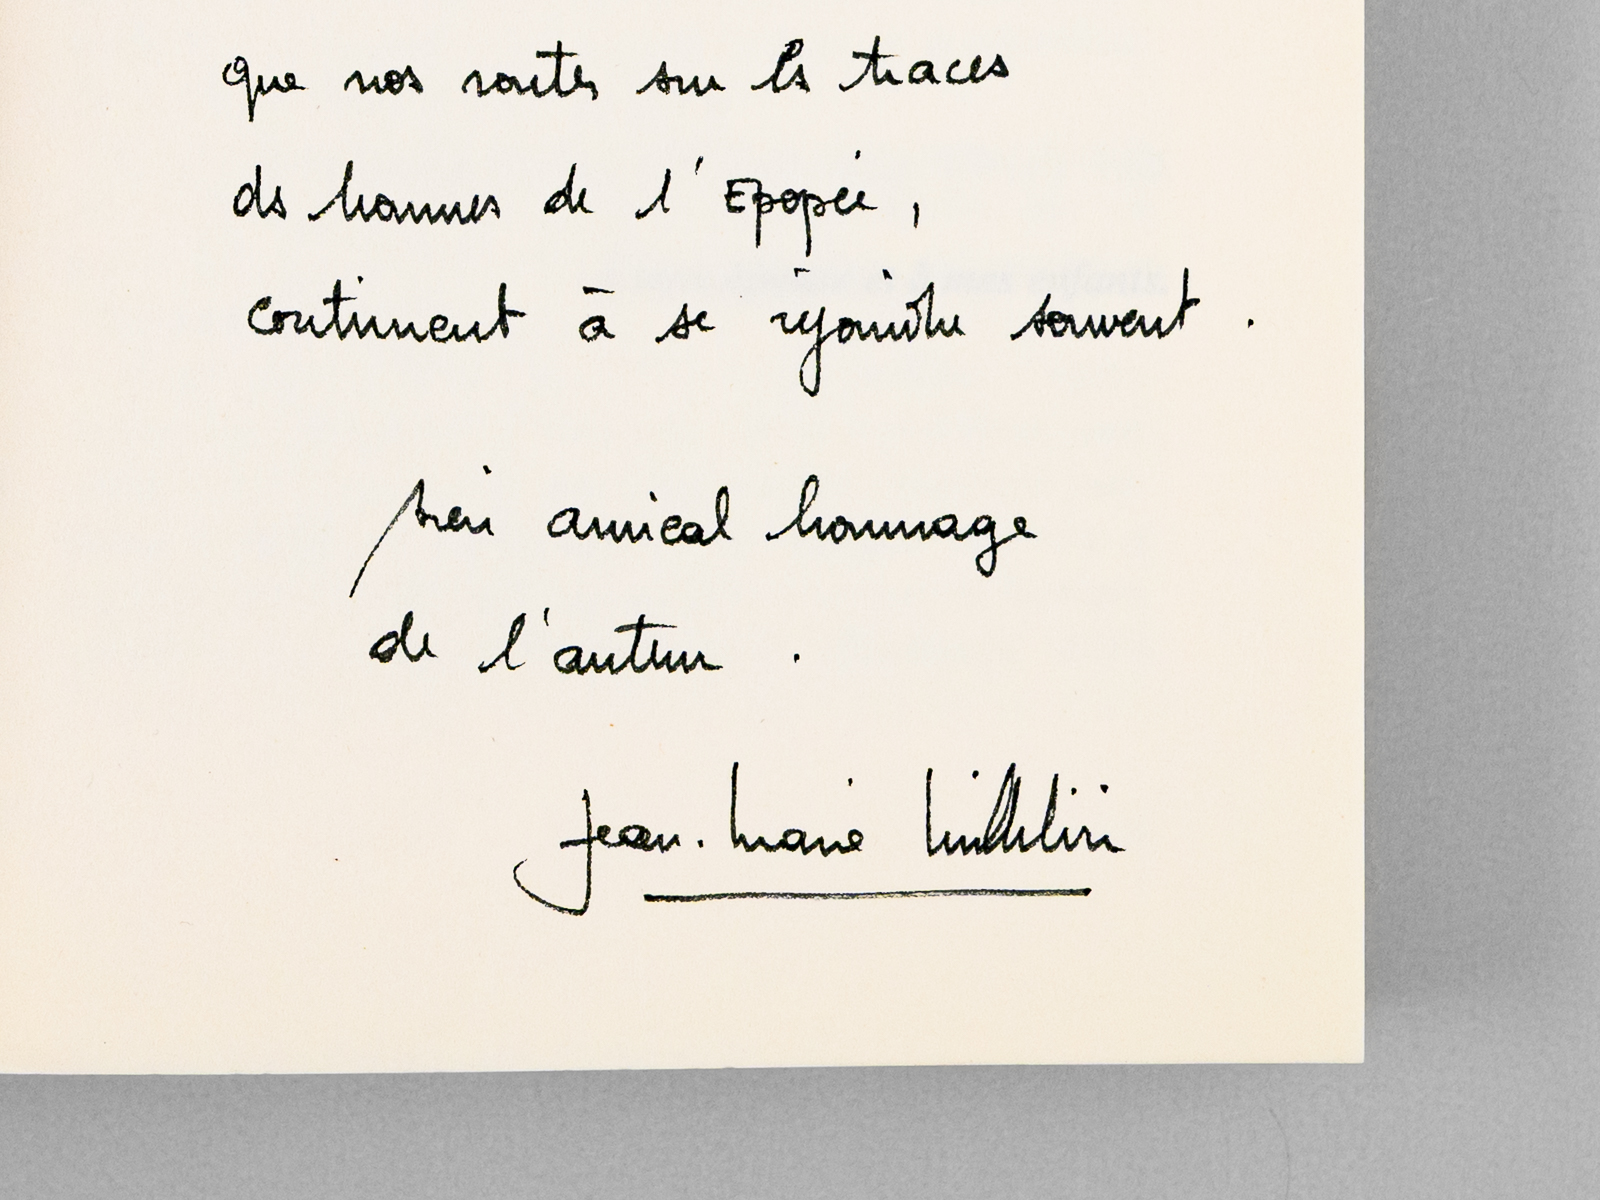 que nos routes sur les traces
des hommes de l'Epopée,
continuent à se rejoindre souvent.
bien amical hommage
de l'auteur.
Jean-Marie